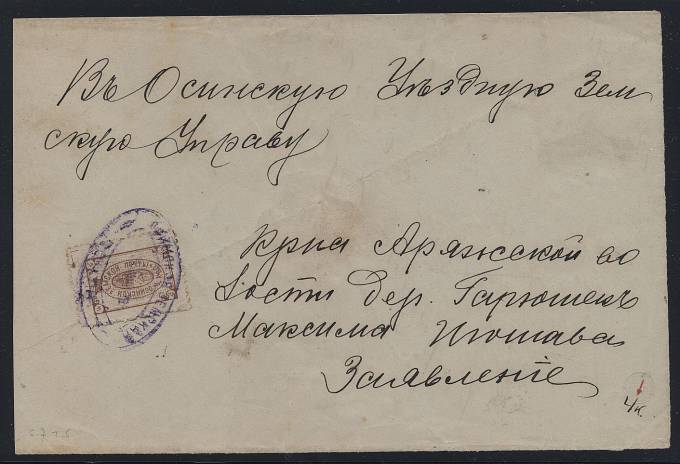 Въ Осинскую Уѣздную Зем
скую Управу
Крна Аряжской во
лости дер. Гарюшекъ
Максима
Заявленіе
4к.